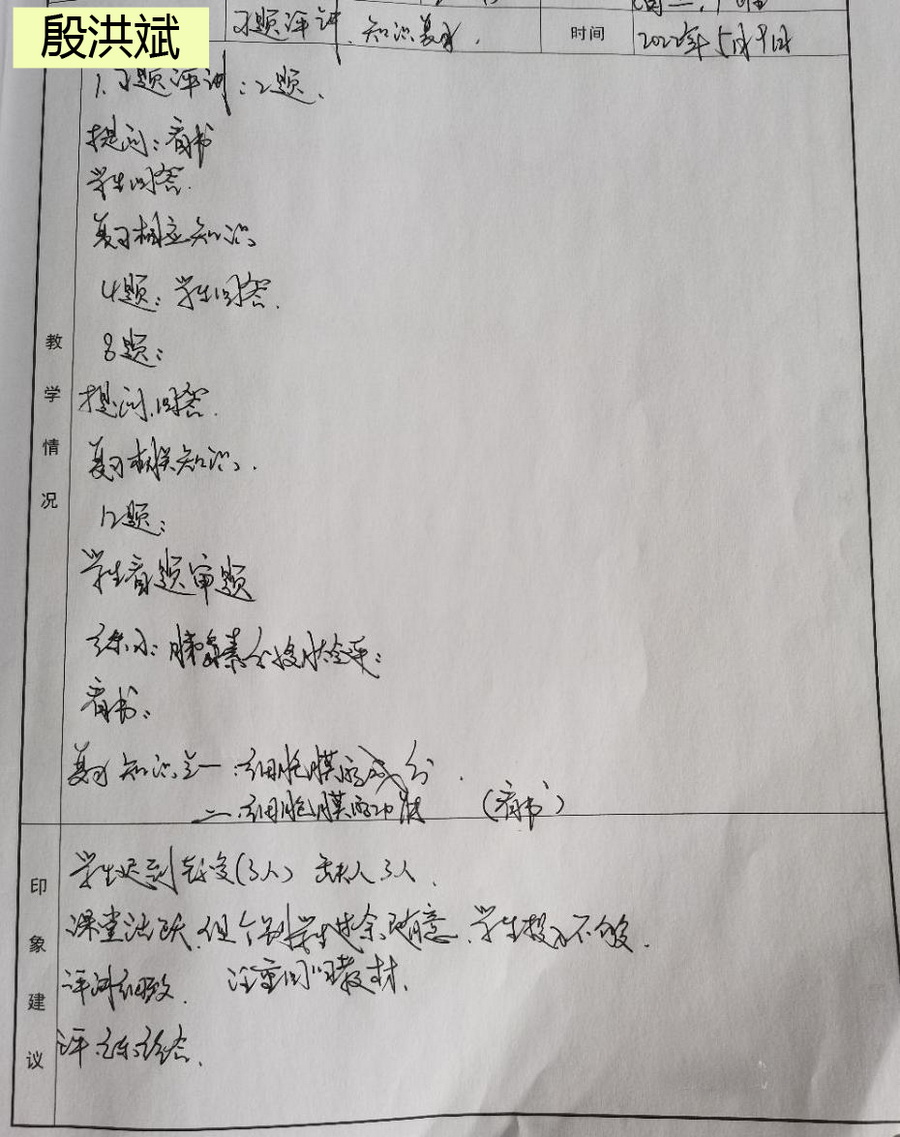 殷洪斌
习题评讲、知识复习. 时间 2022年5月9日
1.习题评讲:2题、
提问:看书
学生回答.
复习相应知识、
4题:学生回答.
8题:
提问,回答.
复习相关知识、.
12题:
学生看题审题
练习:胰岛素分泌
看书:
复习知识 一:细胞膜的成分.
二:细胞膜的功能 (看书)
学生迟到 (3人) 缺人3人.
课堂活跃,但个别学生 随意、学生投入不够.
评讲细致. 注重回归教材.
评、练结合.
教学情况
印象建议